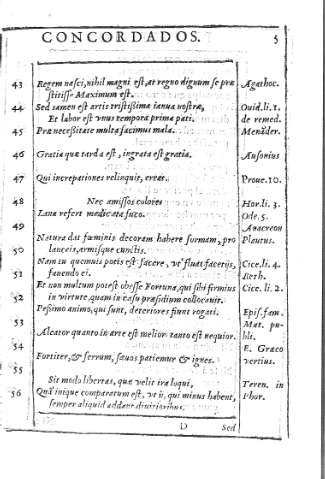 CONCORDADOS. 5
43 Regem nasci, nihil magni est, at regno dignum se præ Agathoc.
stitisse Maximum est.
44 Sed tamen est artis tristissima ianua nostræ, Ouid. li. 1.
Et labor est vnus tempore prima pati. de remed.
45 Præ necessitate multa facimus mala. Menãder.
46 Gratia quæ tarda est, ingrata est gratia. Ausonius
47 Qui increpationes relinquit, errat. Proue. 10.
48 Nec amissos colores Hor. li. 3.
Lana refert medicata fuco. Ode. 5.
49 Anacreon
Natura dat fœminis decoram habere formam, pro Plautus.
50 lanceis, ensisque cunctis.
Nam tu quemuis potis est facere, vt fluat facetijs, Cice. li. 4.
51 fauendo ei. Reth.
Et non multum potest obesse Fortuna, qui sibi firmius Cice. li. 2.
52 in virtute, quam in casu præsidium collocauit.
Pessimo animo, qui sunt, deteriores fiunt rogati. Epis. fam.
53 Mat. pu-
Aleator quanto in arte est melior tanto est nequior. bli.
54 E. Graco
Fortiter, & ferrum, sæuos patiemur & ignes. vertius.
55
Sit modo libertas, quæ velit ira loqui, Teren. in
56 Qui inique comparatum est, vt ij, qui minus habent, Phor.
semper aliquid addant ditioribus.
D Sed